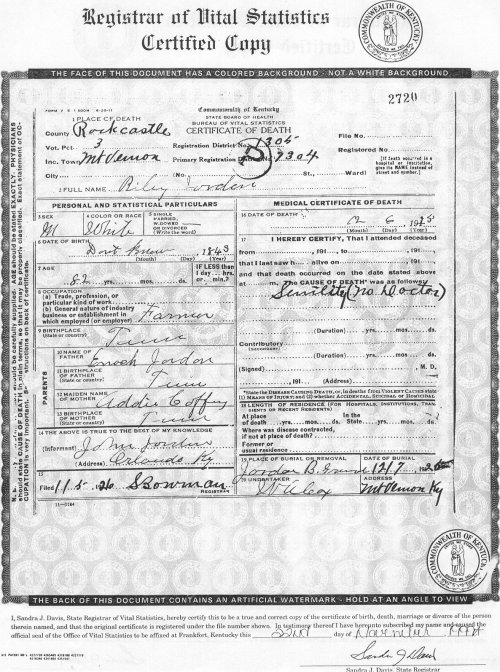 Registrar of Vital Statistics
Certified Copy
COMMONWEALTH OF KENTUCKY
THE FACE OF THIS DOCUMENT HAS A COLORED BACKGROUND - NOT A WHITE BACKGROUND
2720
Commonwealth of Kentucky
STATE BOARD OF HEALTH
BUREAU OF VITAL STATISTICS
CERTIFICATE OF DEATH
1 PLACE OF DEATH
County Rockcastle
Vot. Pct. 3
Registration District No. 1305
File No.
Inc. Town Mt Vernon
Primary Registration No. 7304
Registered No.
[If death occurred in a hospital or institution, give its NAME instead of street and number.]
City (No. St., Ward)
2 FULL NAME Riley Jordon
PERSONAL AND STATISTICAL PARTICULARS
3 SEX M
4 COLOR OR RACE White
5 SINGLE, MARRIED, WIDOWED OR DIVORCED (Write the word)
6 DATE OF BIRTH Dont Know 1843
(Month) (Day) (Year)
7 AGE 82 yrs. mos. ds.
IF LESS than 1 day, hrs. or min.?
8 OCCUPATION
(a) Trade, profession, or particular kind of work
(b) General nature of industry business or establishment in which employed (or employer) Farmer
9 BIRTHPLACE (State or country) Tenn
PARENTS
10 NAME OF FATHER Enoch Jordon
11 BIRTHPLACE OF FATHER (State or country) Tenn
12 MAIDEN NAME OF MOTHER Addie Coffey
13 BIRTHPLACE OF MOTHER (State or country) Tenn
14 THE ABOVE IS TRUE TO THE BEST OF MY KNOWLEDGE
(Informant) John Jordon
(Address) Orlando Ky
15
Filed 11 5 26 S Bowman
REGISTRAR
MEDICAL CERTIFICATE OF DEATH
16 DATE OF DEATH 12 6 1925
(Month) (Day) (Year)
17 I HEREBY CERTIFY, That I attended deceased
from , 191 , to , 191 ,
that I last saw h alive on , 191 ,
and that death occurred on the date stated above
at m. The CAUSE OF DEATH* was as follows:
Senility (No Doctor)
(Duration) yrs. mos. ds.
Contributory
(SECONDARY)
(Duration) yrs. mos. ds.
(Signed) M. D.
, 191 (Address)
*State the DISEASE CAUSING DEATH, or, in deaths from VIOLENT CAUSES state (1) MEANS OF INJURY; and (2) whether ACCIDENTAL, SUICIDAL or HOMICIDAL
18 LENGTH OF RESIDENCE (FOR HOSPITALS, INSTITUTIONS, TRANSIENTS OR RECENT RESIDENTS)
At place of death yrs. mos. ds. In the State yrs. mos. ds.
Where was disease contracted, if not at place of death?
Former or usual residence
19 PLACE OF BURIAL OR REMOVAL
DATE OF BURIAL
Jordon B. 12/7
20 UNDERTAKER
ADDRESS
Mt Vernon Ky
THE BACK OF THIS DOCUMENT CONTAINS AN ARTIFICIAL WATERMARK - HOLD AT AN ANGLE TO VIEW
COMMONWEALTH OF KENTUCKY
I, Sandra J. Davis, State Registrar of Vital Statistics, hereby certify this to be a true and correct copy of the certificate of birth, death, marriage or divorce of the person
therein named, and that the original certificate is registered under the file number shown. In testimony thereof I have hereunto subscribed my name and caused the
official seal of the Office of Vital Statistics to be affixed at Frankfort, Kentucky this 22nd day of November
Sandra J. Davis
Sandra J. Davis, State Registrar